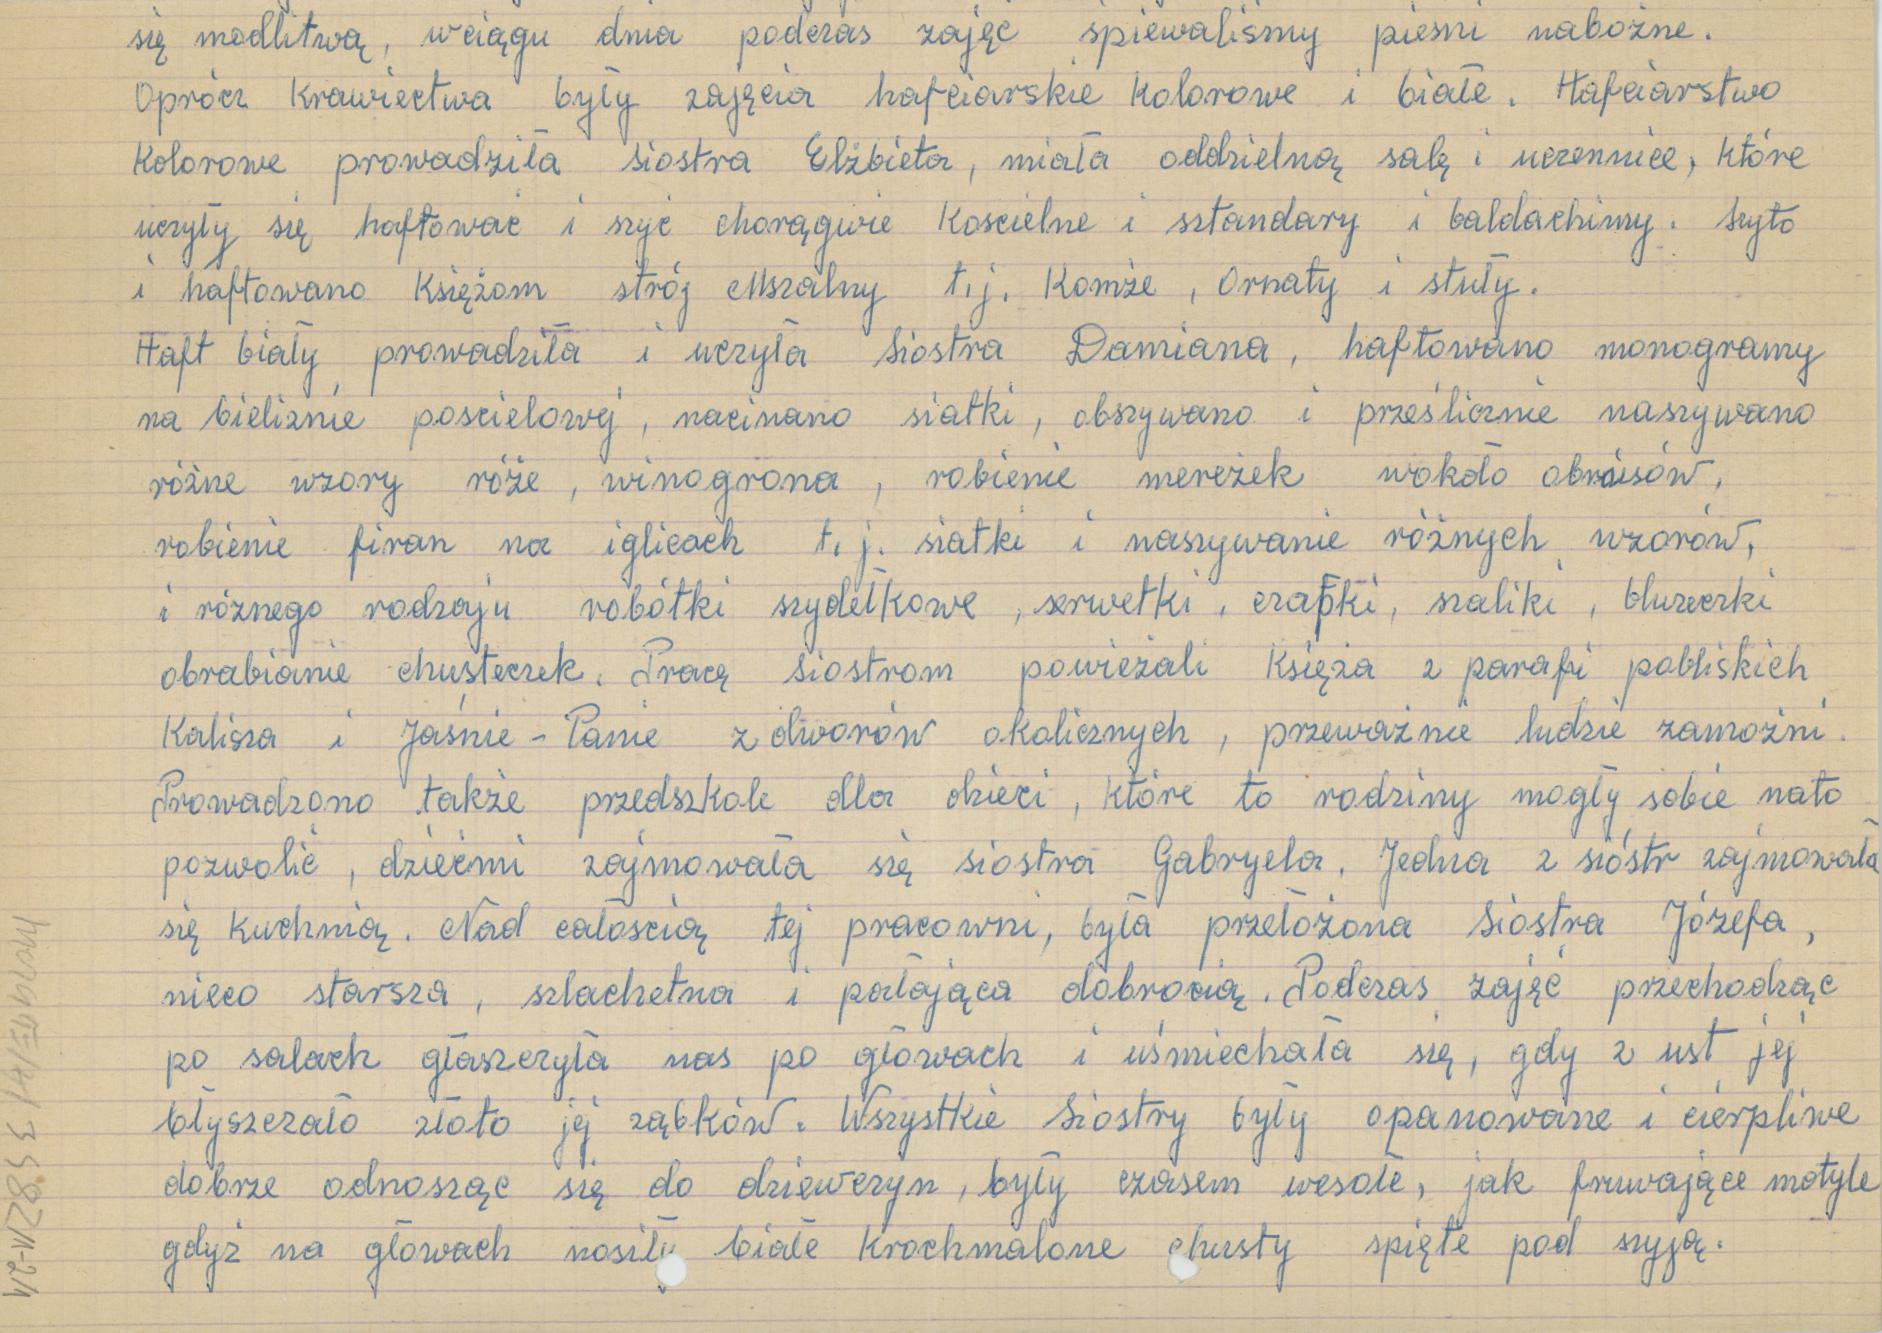 się modlitwą, wciągu dnia podczas zajęc śpiewaliśmy piesni nabożne.
Oprócz Krawiectwa były zajęcia hafciarskie Kolorowe i białe. Hafciarstwo
Kolorowe prowadziła siostra Elżbieta, miała oddzielną salę i uczennice, które
uczyły się haftować i szyć chorągwie Koscielne i sztandary i baldachimy. Szyto
i haftowano Księżom strój Mszalny t.j. Komże, Ornaty i stuły.
Haft biały prowadziła i uczyła Siostra Damiana, haftowano monogramy
na bieliznie poscielowej, nacinano siatki, obszywano i prześlicznie naszywano
różne wzory róże, winogrona, robienie mereżek wokoło obrusów,
robienie firan na iglicach t.j. siatki i naszywanie różnych wzorów,
i róznego rodzaju robótki szydełkowe, serwetki, czapki, szaliki, bluzeczki
obrabianie chusteczek. Pracę Siostrom powieżali Księża z parafi pobliskich
Kalisza i Jaśnie-Panie z dworów okolicznych, przeważnie ludzie zamożni.
Prowadzono także przedszkole dla dzieci, które to rodziny mogły sobie nato
pozwolić, dziećmi zajmowała się siostra Gabryela. Jedna z sióstr zajmowała
się Kuchnią. Nad całoscią tej pracowni, była przełożona Siostra Józefa,
nieco starsza, szlachetna i pałająca dobrocią. Podczas zajęć przechodząc
po salach głaszczyła nas po głowach i uśmiechała się, gdy z ust jej
błyszczało złoto jej ząbków. Wszystkie Siostry były opanowane i cierpliwe
dobrze odnosząc się do dziewczyn, były czasem wesołe, jak fruwające motyle
gdyż na głowach nosiły białe Krochmalone chusty spięte pod szyją.